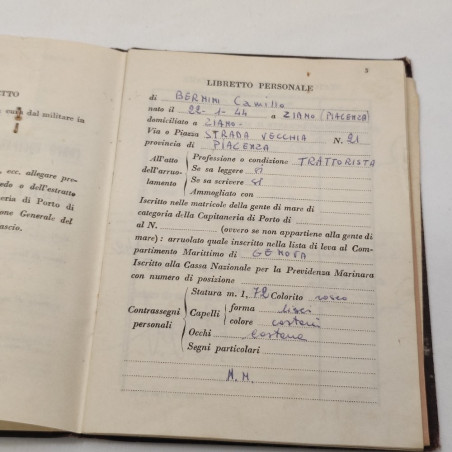 ETTO
cura dal militare in
ecc. allegare pre-
edo o dell'estratto
neria di Porto di
ione Generale del
ascio.
3
LIBRETTO PERSONALE
di BERNINI Camillo
nato il 22-1-44 a ZIANO (PIACENZA)
domiciliato a ZIANO.
Via o Piazza STRADA VECCHIA N. 21
provincia di PIACENZA
All'atto dell'arruolamento
Professione o condizione TRATTORISTA
Se sa leggere SI
Se sa scrivere SI
Ammogliato con
Iscritto nelle matricole della gente di mare di
categoria della Capitaneria di Porto di
al N. (ovvero se non appartiene alla gente di
mare): arruolato quale inscritto nella lista di leva al Com-
partimento Marittimo di GENOVA
Iscritto alla Cassa Nazionale per la Previdenza Marinara
con numero di posizione
Contrassegni personali
Statura m. 1,72 Colorito roseo
Capelli
forma lisci
colore castani
Occhi castana
Segni particolari
M.M.